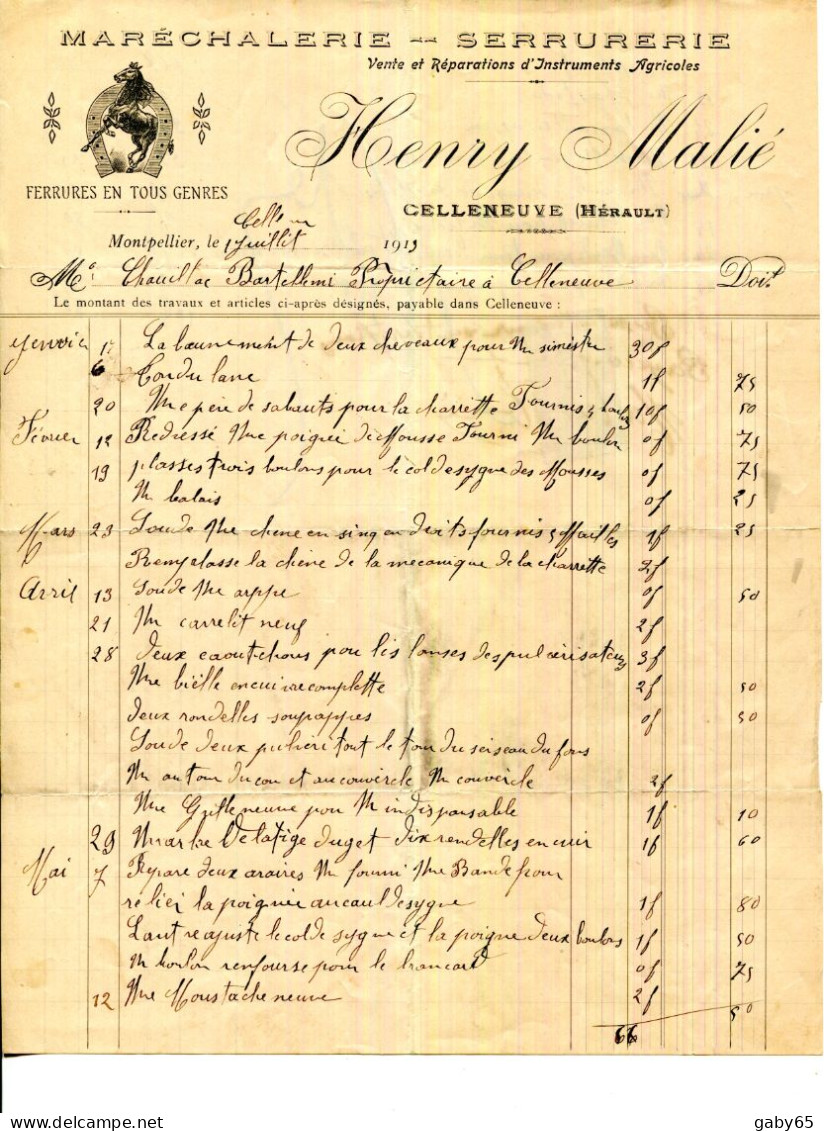 MARÉCHALERIE — SERRURERIE
Vente et Réparations d'Instruments Agricoles
Henry Malié
FERRURES EN TOUS GENRES
CELLENEUVE (HÉRAULT)
Montpellier, le 1 Juillit 1913
Mr Chauillac Bartellemi Propriétaire à Celleneuve Doit
Le montant des travaux et articles ci-après désignés, payable dans Celleneuve :
La bounement de deux cheveaux pour Un simestre 30f
6 Tondu lane 1f 75
20 Une père de sabauts pour la charrette Fournis 4 boulons 10f 50
Février 12 Redressé Une poignée de Mousse Fourni Un boulon 0f 75
19 plasses trois boulons pour le col de sygne des Mousses 0f 75
Un balais 0f 25
Mars 23 Soude Une chene en sinq endroits fournis 5 Mailles 1f 25
Remplasse la chène de la mecanique de la charrette 2f
Avril 13 Soude Une arppe 0f 50
21 Un carrelit neuf 2f
28 deux caoutchous pour lis lanses des pulverisateurs 3f
Une bielle en cuivre complette 2f 50
deux rondelles souppappes 0f 50
Soude deux tout le tour du seiseau du fons
Un au tour du cou et au couvercle Un couvercle 2f
Une Grille neuve pour Un indisponsable 1f 10
29 de la tige duget dix rondelles en cuir 1f 60
Mai 7 Repare deux araires Un fourni Une Bande pour
relier la poignie au caul de sygne 1f 80
Lautre ajuste le col de sygne et la poigne deux boulons 1f 50
Un boulon renfourse pour le brancard 0f 75
12 Une Moustache neuve 2f 50
66
gaby65